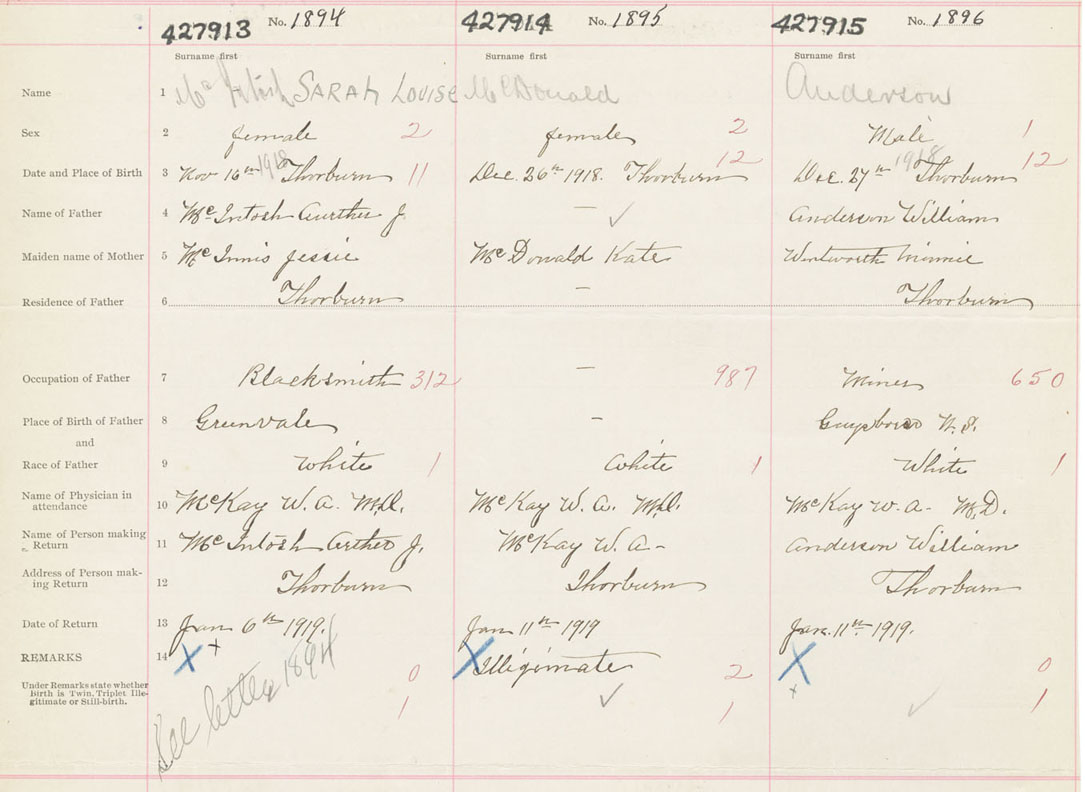 427913 No. 1894 427914 No. 1895 427915 No. 1896
Surname first Surname first Surname first
Name 1 McIntosh SARAH LOUISE McDonald Anderson
Sex 2 female 2 female 2 Male 1
Date and Place of Birth 3 Nov 16th 1918 Thorburn 11 Dec. 26th 1918. Thorburn 12 Dec. 27th 1918 Thorburn 12
Name of Father 4 McIntosh Aurther J. — ✓ Anderson William
Maiden name of Mother 5 McInnis Jessie McDonald Kate Wentworth Minnie
Residence of Father 6 Thorburn — Thorburn
Occupation of Father 7 Blacksmith 312 — 987 Miner 650
Place of Birth of Father 8 Greenvale — Guysboro N.S.
and
Race of Father 9 White 1 White 1 White 1
Name of Physician in
attendance 10 McKay W. A. M.D. McKay W. A. M.D. McKay W. A. M.D.
Name of Person making
Return 11 McIntosh Arther J. McKay W. A- Anderson William
Address of Person mak-
ing Return 12 Thorburn Thorburn Thorburn
Date of Return 13 Jan 6th 1919. Jan 11th 1919 Jan. 11th 1919.
REMARKS 14 X + X Illigimate X
Under Remarks state whether 0 2 0
Birth is Twin, Triplet, Ille-
gitimate or Still-birth. 1 ✓ 1 x ✓ 1
See letter 1894